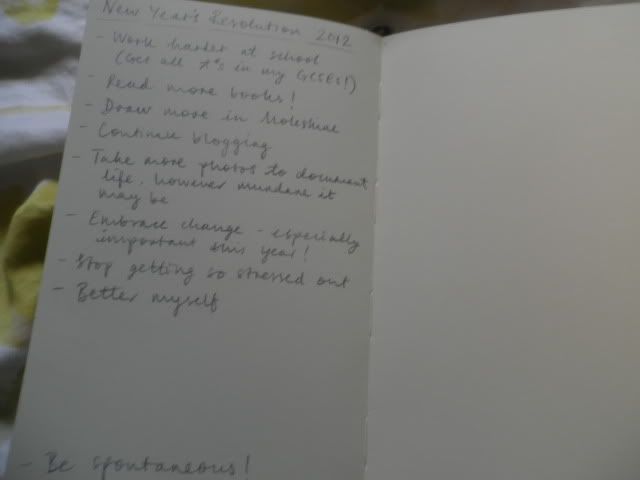 New Year's Resolution 2012
- Work harder at school
(Get all A*s in my GCSEs!)
- Read more books!
- Draw more in Moleskine
- Continue blogging
- Take more photos to document
life, however mundane it
may be
- Embrace change - especially
important this year!
- Stop getting so stressed out
- Better myself
- Be spontaneous!